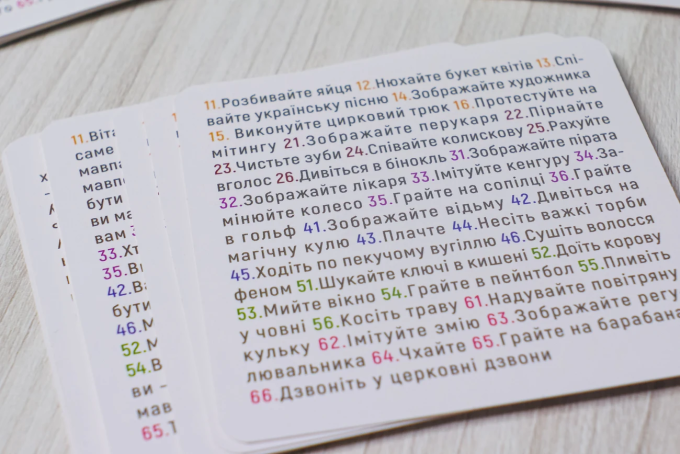 65.
11.Розбивайте яйця 12.Нюхайте букет квітів 13.Спі-
вайте українську пісню 14.Зображайте художника
15. Виконуйте цирковий трюк 16.Протестуйте на
мітингу 21.Зображайте перукаря 22.Пірнайте
23.Чистьте зуби 24.Співайте колискову 25.Рахуйте
вголос 26.Дивіться в бінокль 31.Зображайте пірата
32.Зображайте лікаря 33.Імітуйте кенгуру 34.За-
мінюйте колесо 35.Грайте на сопілці 36.Грайте
в гольф 41.Зображайте відьму 42.Дивіться на
магічну кулю 43.Плачте 44.Несіть важкі торби
45.Ходіть по пекучому вугіллю 46.Сушіть волосся
феном 51.Шукайте ключі в кишені 52.Доїть корову
53.Мийте вікно 54.Грайте в пейнтбол 55.Пливіть
у човні 56.Косіть траву 61.Надувайте повітряну
кульку 62.Імітуйте змію 63.Зображайте регу
лювальника 64.Чхайте 65.Грайте на барабана
66.Дзвоніть у церковні дзвони
11.Віта
саме
мавпа
мавп
бути
ви ма
вам
33.Хт
35.Ві
42.Ва
бути
46.М
52.М
54.В
ви –
мав
65.Т